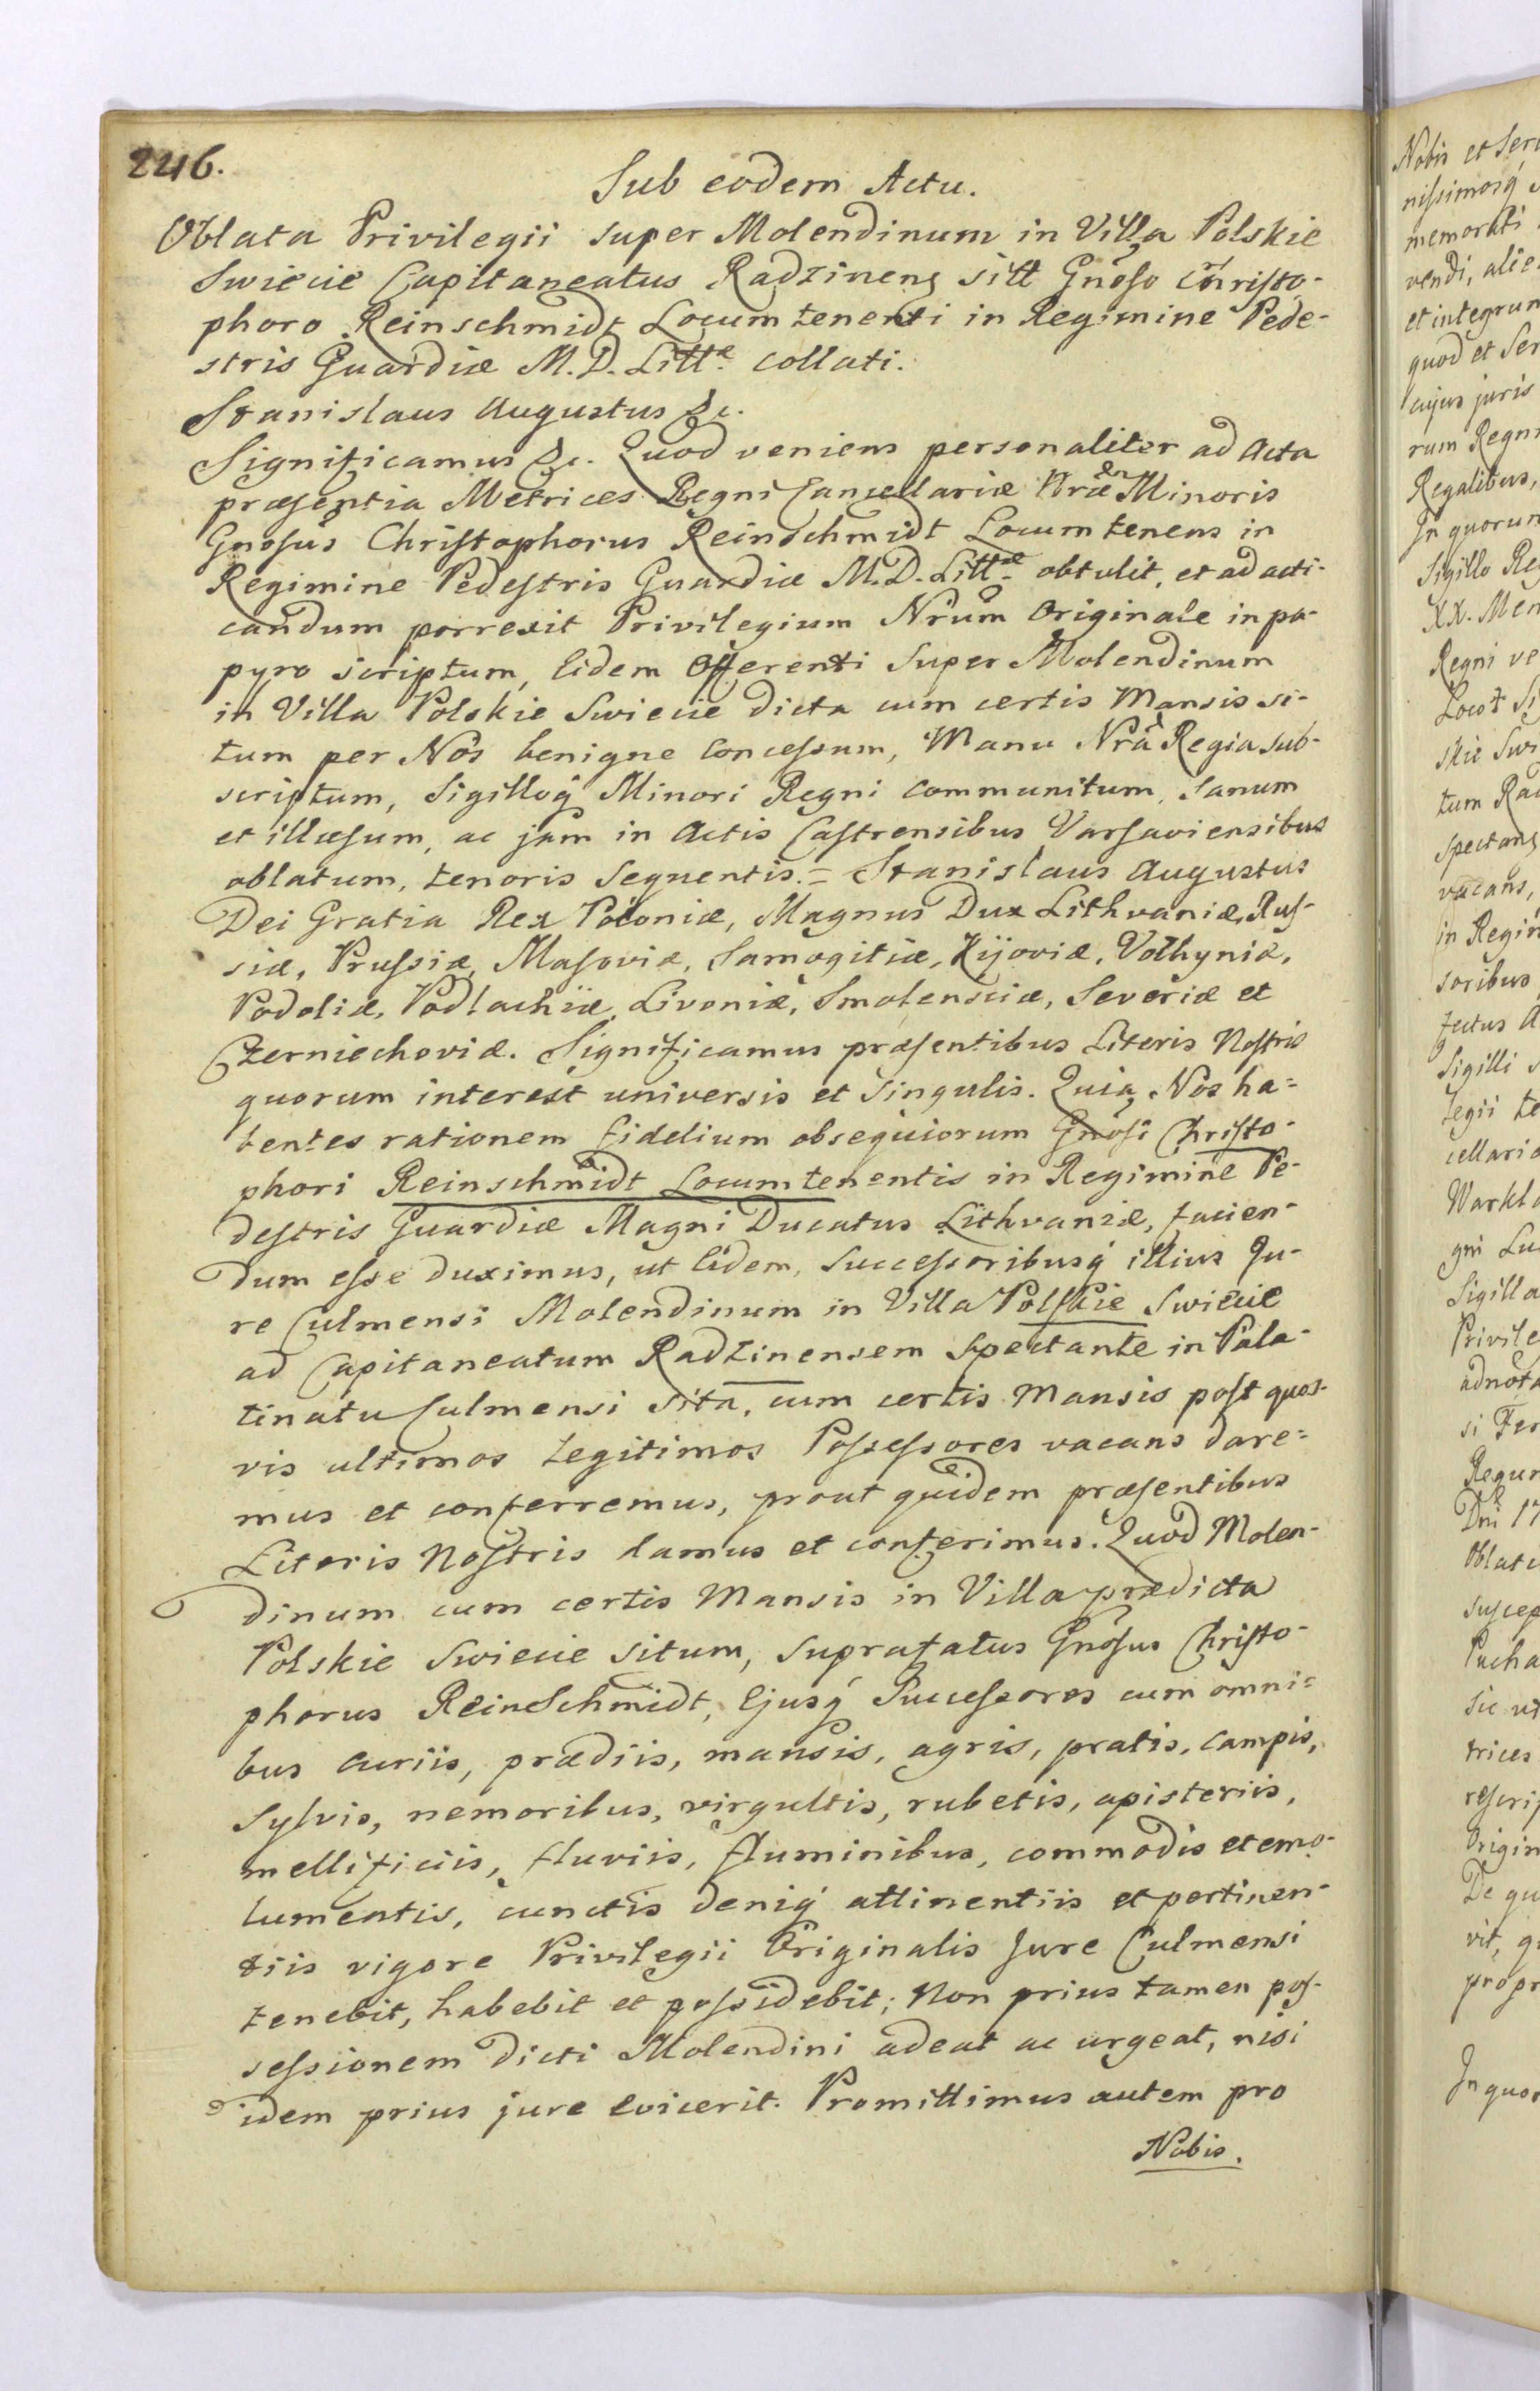 246.
Sub eodem Actu.
Oblata Privilegii super Molendinum in Villa Polskie
Swiecie Capitaneatus Radzinens sitt Gnoso Christo-
phoro Reinschmidt Locum tenenti in Regimine Pede-
stris Guardiæ M. D. Littæ collati.
Stanislaus Augustus &c.
Significamus &c. Quod veniens personaliter ad Acta
præsentia Metrices Regni Cancellariæ Nræ Minoris
Gnosus Christophorus Reinschmidt Locum tenens in
Regimine Pedestris Guardiæ M. D. Littæ obtulit, et ad acti-
candum porrexit Privilegium Nrum Originale in pa-
pyro scriptum, Eidem Offerenti super Molendinum
in Villa Polskie Swiecie dicta cum certis Mansis si-
tum per Nos benigne Concessum, Manu Nra Regia sub-
scriptum, Sigilloq́ Minori Regni communitum, Sanum
et illæsum, ac jam in Actis Castrensibus Varsaviensibus
oblatum, tenoris sequentis. = Stanislaus Augustus
Dei Gratia Rex Poloniæ, Magnus Dux Lithvaniæ, Rus-
siæ, Prussiæ, Masoviæ, Samogitiæ, Kijoviæ, Volhyniæ,
Podoliæ, Podlachiæ, Livoniæ, Smolensciæ, Severiæ et
Czerniechoviæ. Significamus præsentibus Literis Nostris
quorum interest universis et singulis. Quia Nos ha=
bentes rationem fidelium obsequiorum Gnosi Christo-
phori Reinschmidt Locumtenentis in Regimine Pe-
destris Guardiæ Magni Ducatus Lithvaniæ, facien-
dum esse duximus, ut Eidem, Successoribusq́ illius Ju-
re Culmensi Molendinum in Villa Polskie Swiecie
ad Capitaneatum Radzinensem Spectante in Pala-
tinatu Culmensi sita, cum certis Mansis post quos-
vis ultimos legitimos Possessores vacans dare=
mus et conferremus, prout quidem præsentibus
Literis Nostris damus et conferimus. Quod Molen-
dinum cum certis Mansis in Villa prædicta
Polskie Swiecie situm, suprafatus Gnosus Christo-
phorus ReinSchmidt, Ejusq́ Successores cum omni=
bus curiis, prædiis, mansis, agris, pratis, campis,
Sylvis, nemoribus, virgultis, rubetis, apisteriis,
mellificiis, fluviis, fluminibus, commodis et emo-
lumentis, cunctis deniq́ attinentiis et pertinen-
tiis vigore Privilegii Originalis Jure Culmensi
tenebit, habebit et possidebit; Non prius tamen pos-
sessionem dicti Molendini adeat ac urgeat, nisi
idem prius jure evicerit. Promittimus autem pro
Nobis.
Nobis et Ser
nissimosq́
memorati
vendi, alie
et integrum
quod et Ser
cujus juris
rum Regni
Regalibus,
In quorum
Sigillo Re
XX. Men
Regni ve
skie Swi
tum Rad
vacans,
in Regim
soribus
Sigilli s
legii te
cellario
Sigilla
Privile
adnota
Dni 17
Oblat
suscep
trices
Origin
De qu
vit, q
propr
In quor